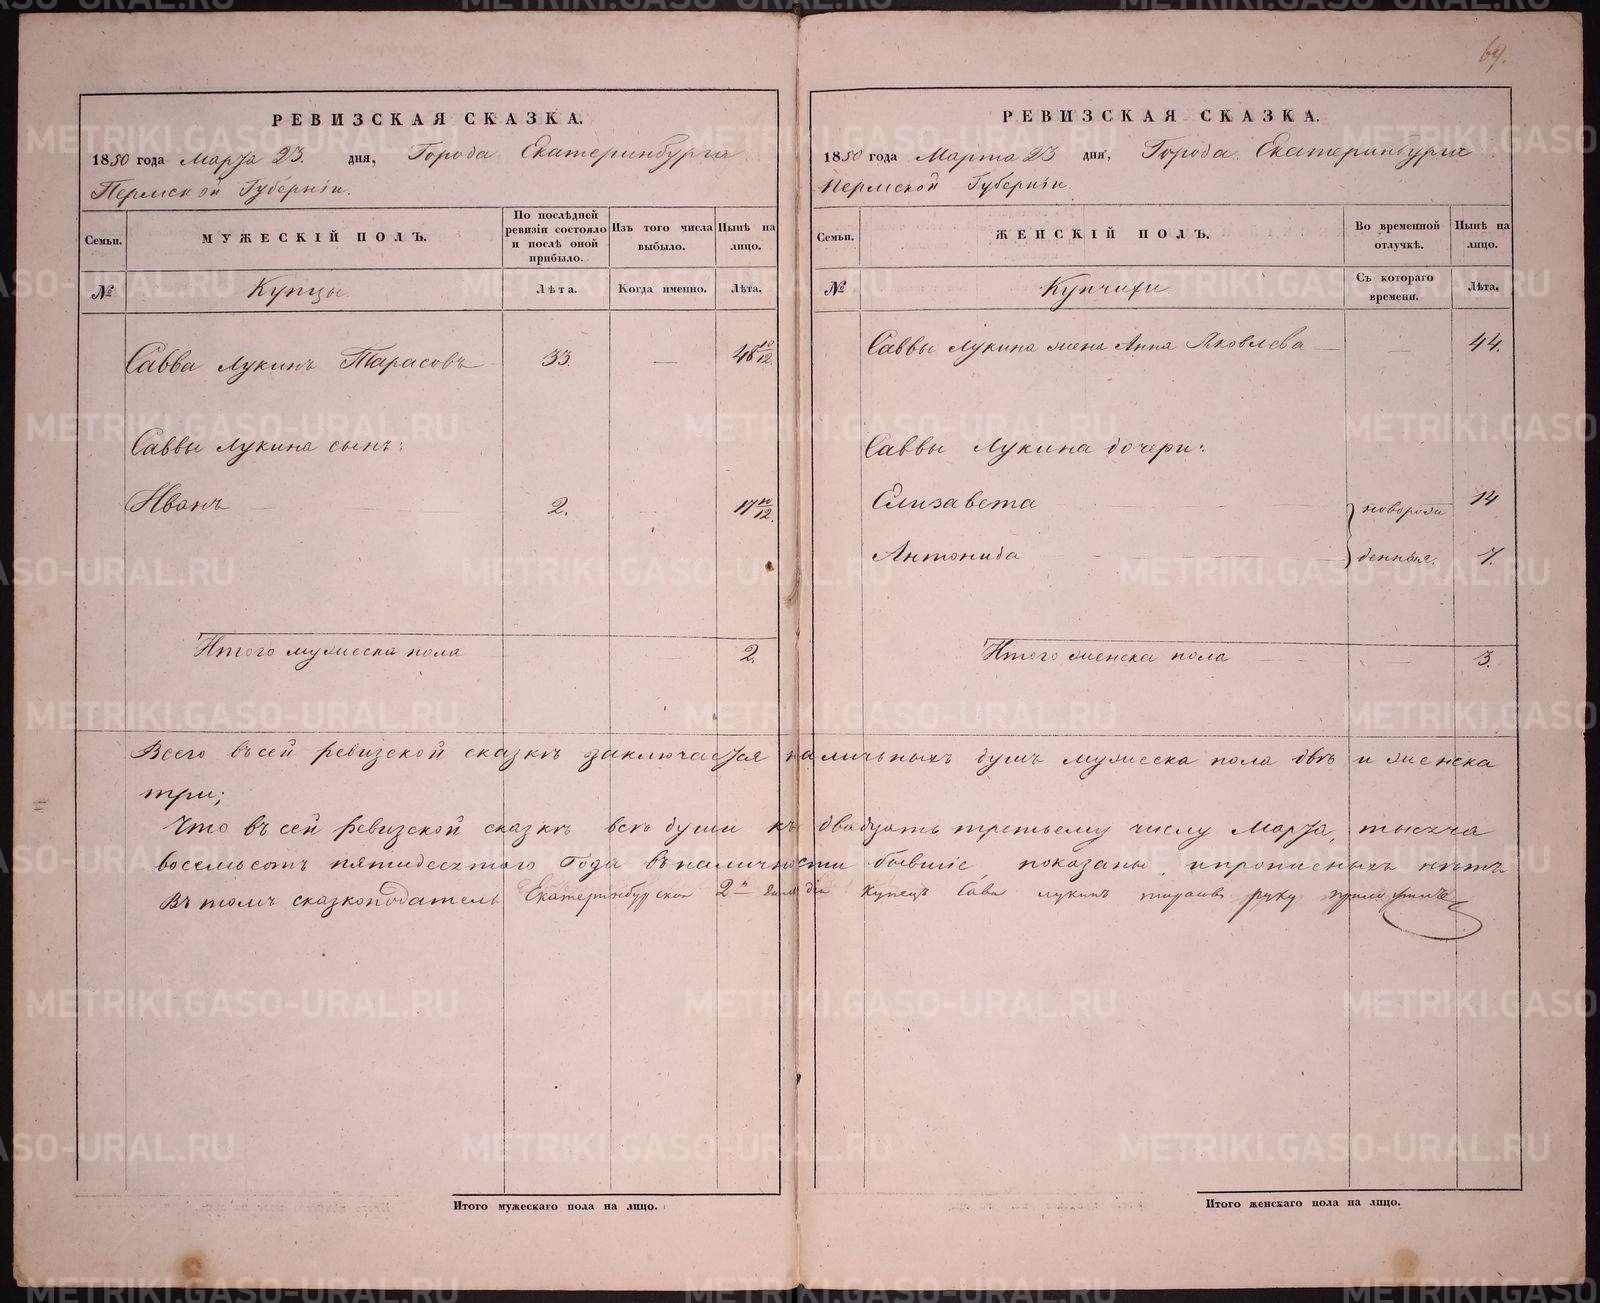 69.
РЕВИЗСКАЯ СКАЗКА.
1850 года Марта 23. дня, Города Екатеринбурга
Пермской Губерніи.
Семьи. МУЖЕСКІЙ ПОЛЪ. По послѣдней ревизіи состояло и послѣ оной прибыло. Изъ того числа выбыло. Нынѣ на лицо.
№ Купцы. Лѣта. Когда именно. Лѣта.
Савва Лукинъ Тарасовъ 33. — 48 10/12.
Саввы Лукина сынъ:
Иванъ 2. — 17 10/12.
Итого мужеска пола 2.
РЕВИЗСКАЯ СКАЗКА.
1850 года Марта 23 дня, Города Екатеринбурга
Пермской Губерніи.
Семьи. ЖЕНСКІЙ ПОЛЪ. Во временной отлучкѣ. Нынѣ на лицо.
№ Купчихи. Съ котораго времени. Лѣта.
Саввы Лукина жена Анна Яковлева — — 44.
Саввы Лукина дочери:
Елизавета новорож 14
Антонида денныя. 7.
Итого женска пола — 3.
Всего въ сей ревизской сказкѣ заключается наличныхъ душъ мужеска пола двѣ и женска
три;
Что въ сей ревизской сказкѣ всѣ души къ двадцать третьему числу Марта, тысяча
восемьсотъ пятидесятого года въ наличности бывшіе показаны и прописныхъ нѣтъ
Въ томъ сказкоподатель Екатеринбурской 2й гилдіи купецъ Сава лукинъ тарасовъ руку приложилъ
Итого мужескаго пола на лицо.
Итого женскаго пола на лицо.
METRIKI.GASO-URAL.RU